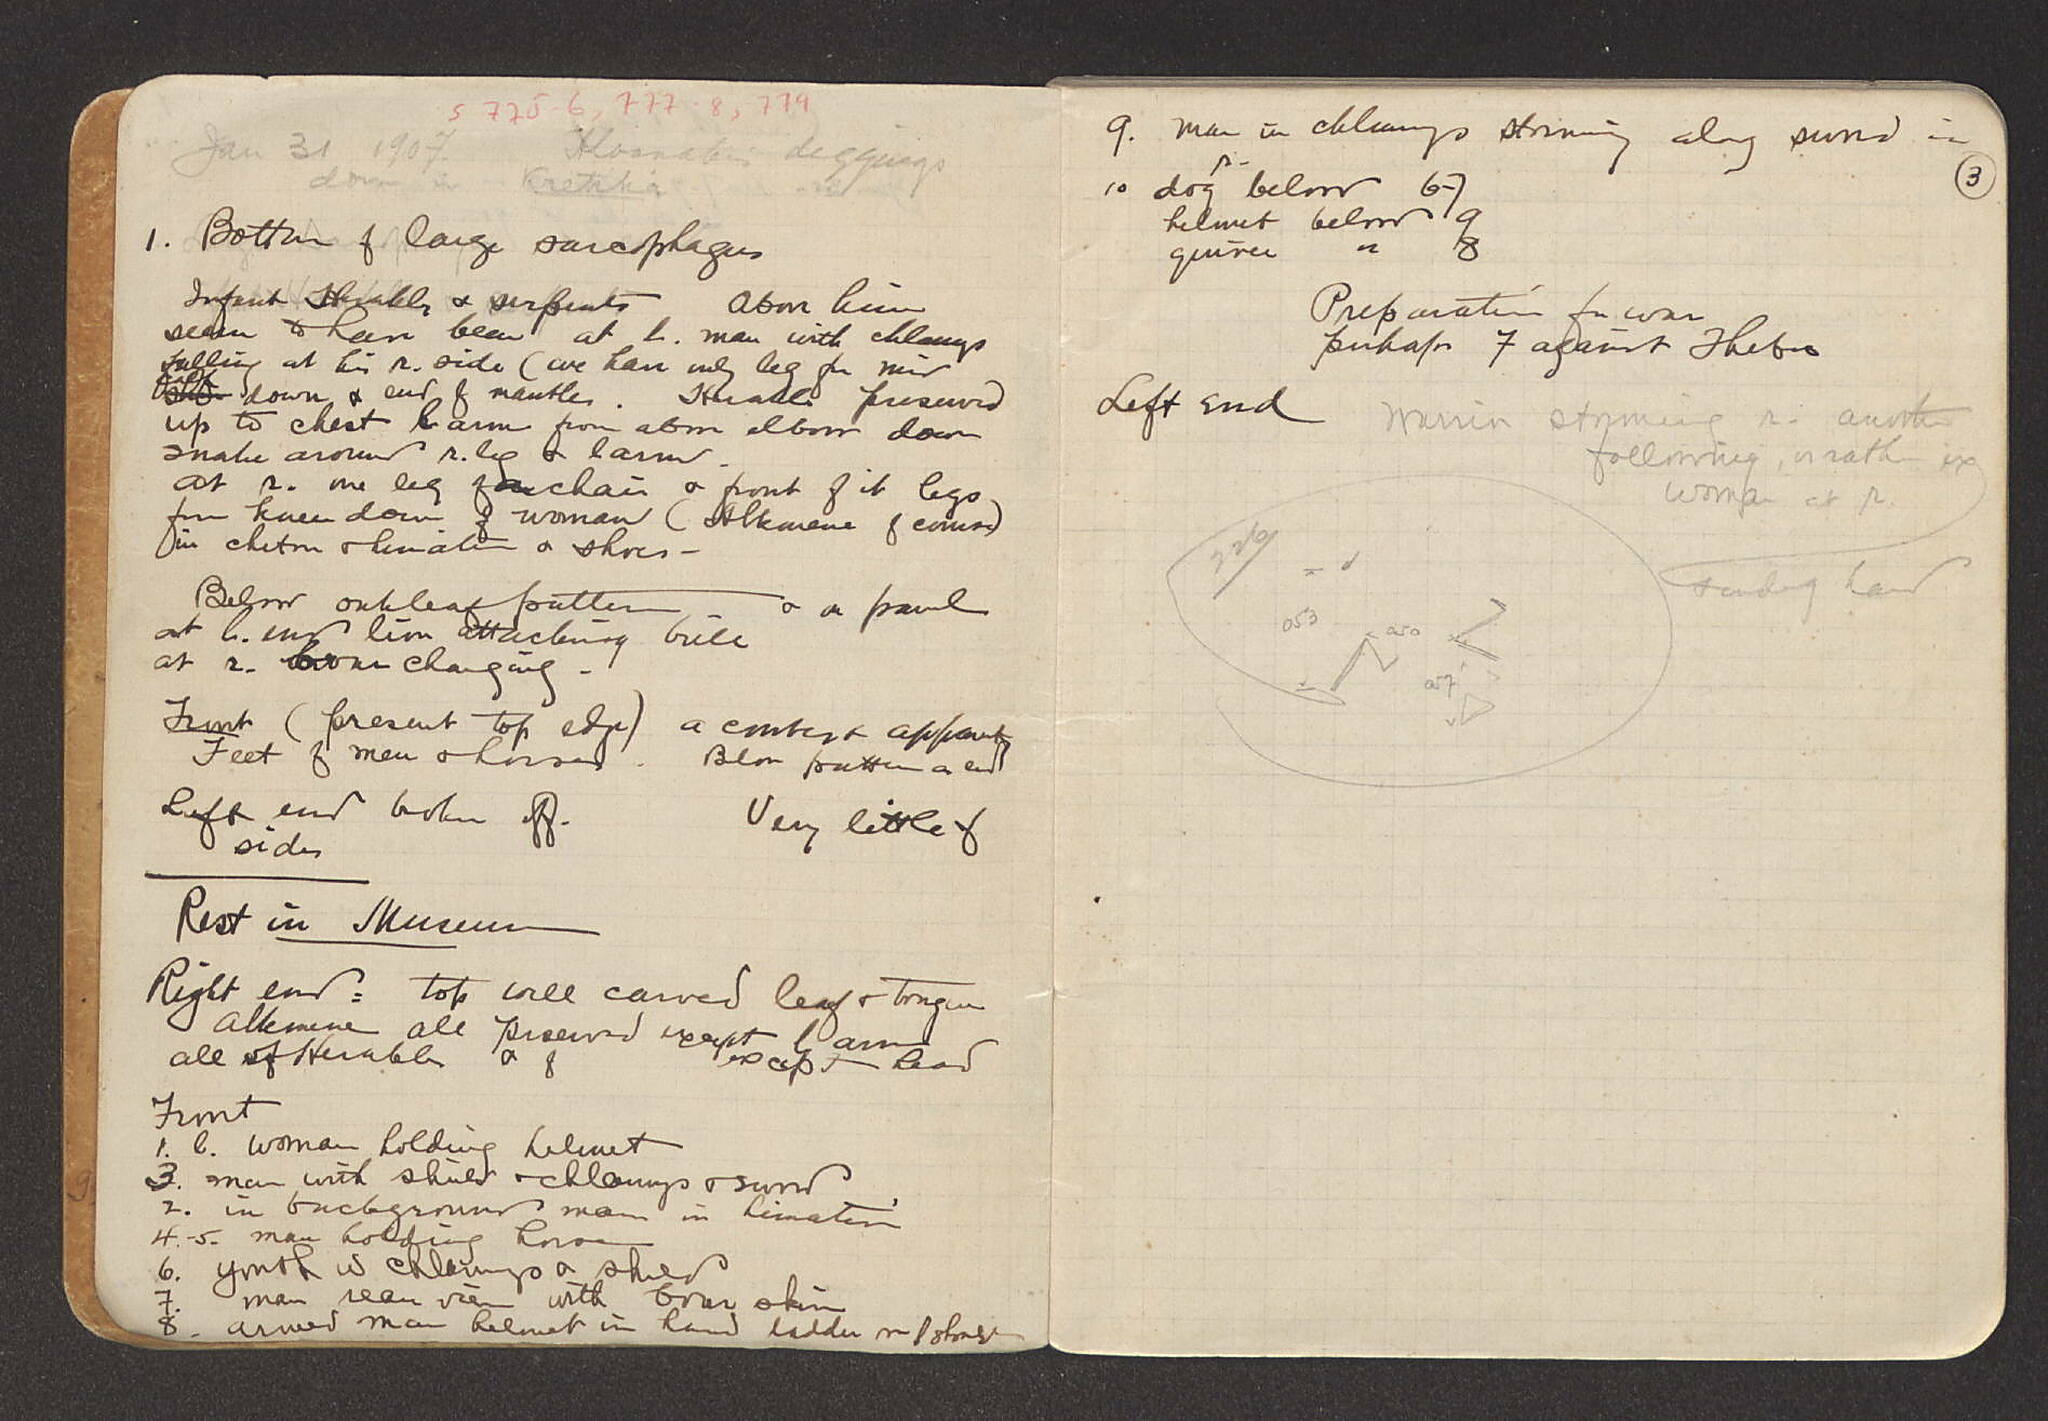 S 775-6, 777-8, 779
Jan 31 1907. diggings
down in Kretika
1. Bottom of large sarcophagus
Infant Herakles & serpents Above him
seem to have been at l. man with chlamys
falling at his r. side (we have only leg fr mid
down & end of mantle. Herakles preserved
up to chest l arm from above elbow down
snake around r. leg & l arm.
at r. one leg of chair & front of it legs
from knee down of woman (Alkmene of course)
in chiton & himation & shoes -
Below oakleaf pattern - & on panel
at l. end lion attacking bull
at r. boar charging -
Front (present top edge) a contest apparently
Feet of men & horses. Below pattern as end
Left end broken off. Very little of
sides
Rest in Museum
Right end: top well carved leaf & tongue
Alkmene all preserved except l arm
all of Herakles & of except head
Front
1. l. woman holding helmet
3. man with shield & chlamys & sword
2. in background man in himation
4.-5. man holding horse
6. youth w chlamys & shield
7. man rear view with boar skin
8. armed man helmet in hand ladder on l shoulder
9. man in chlamys striding along sword in
r.
3
10 dog below 6-7
helmet below 9
quiver " 8
Preparation for war
perhaps 7 against Thebes
Left End Warrior r. another
following, or rather
woman at r.
226
053
050
057
hand